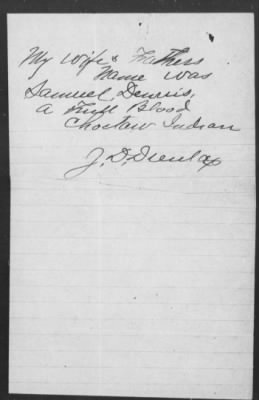 My Wife's Fathers
Name was
Samuel Dennis,
a Full Blood
Choctaw Indian
J. D. Dunlap